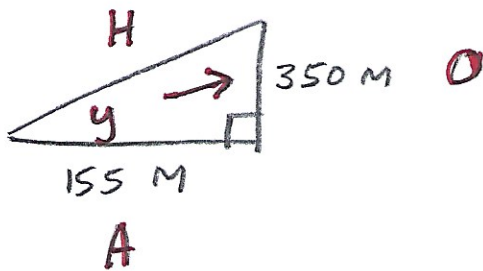 H
350 M O
y
155 M
A